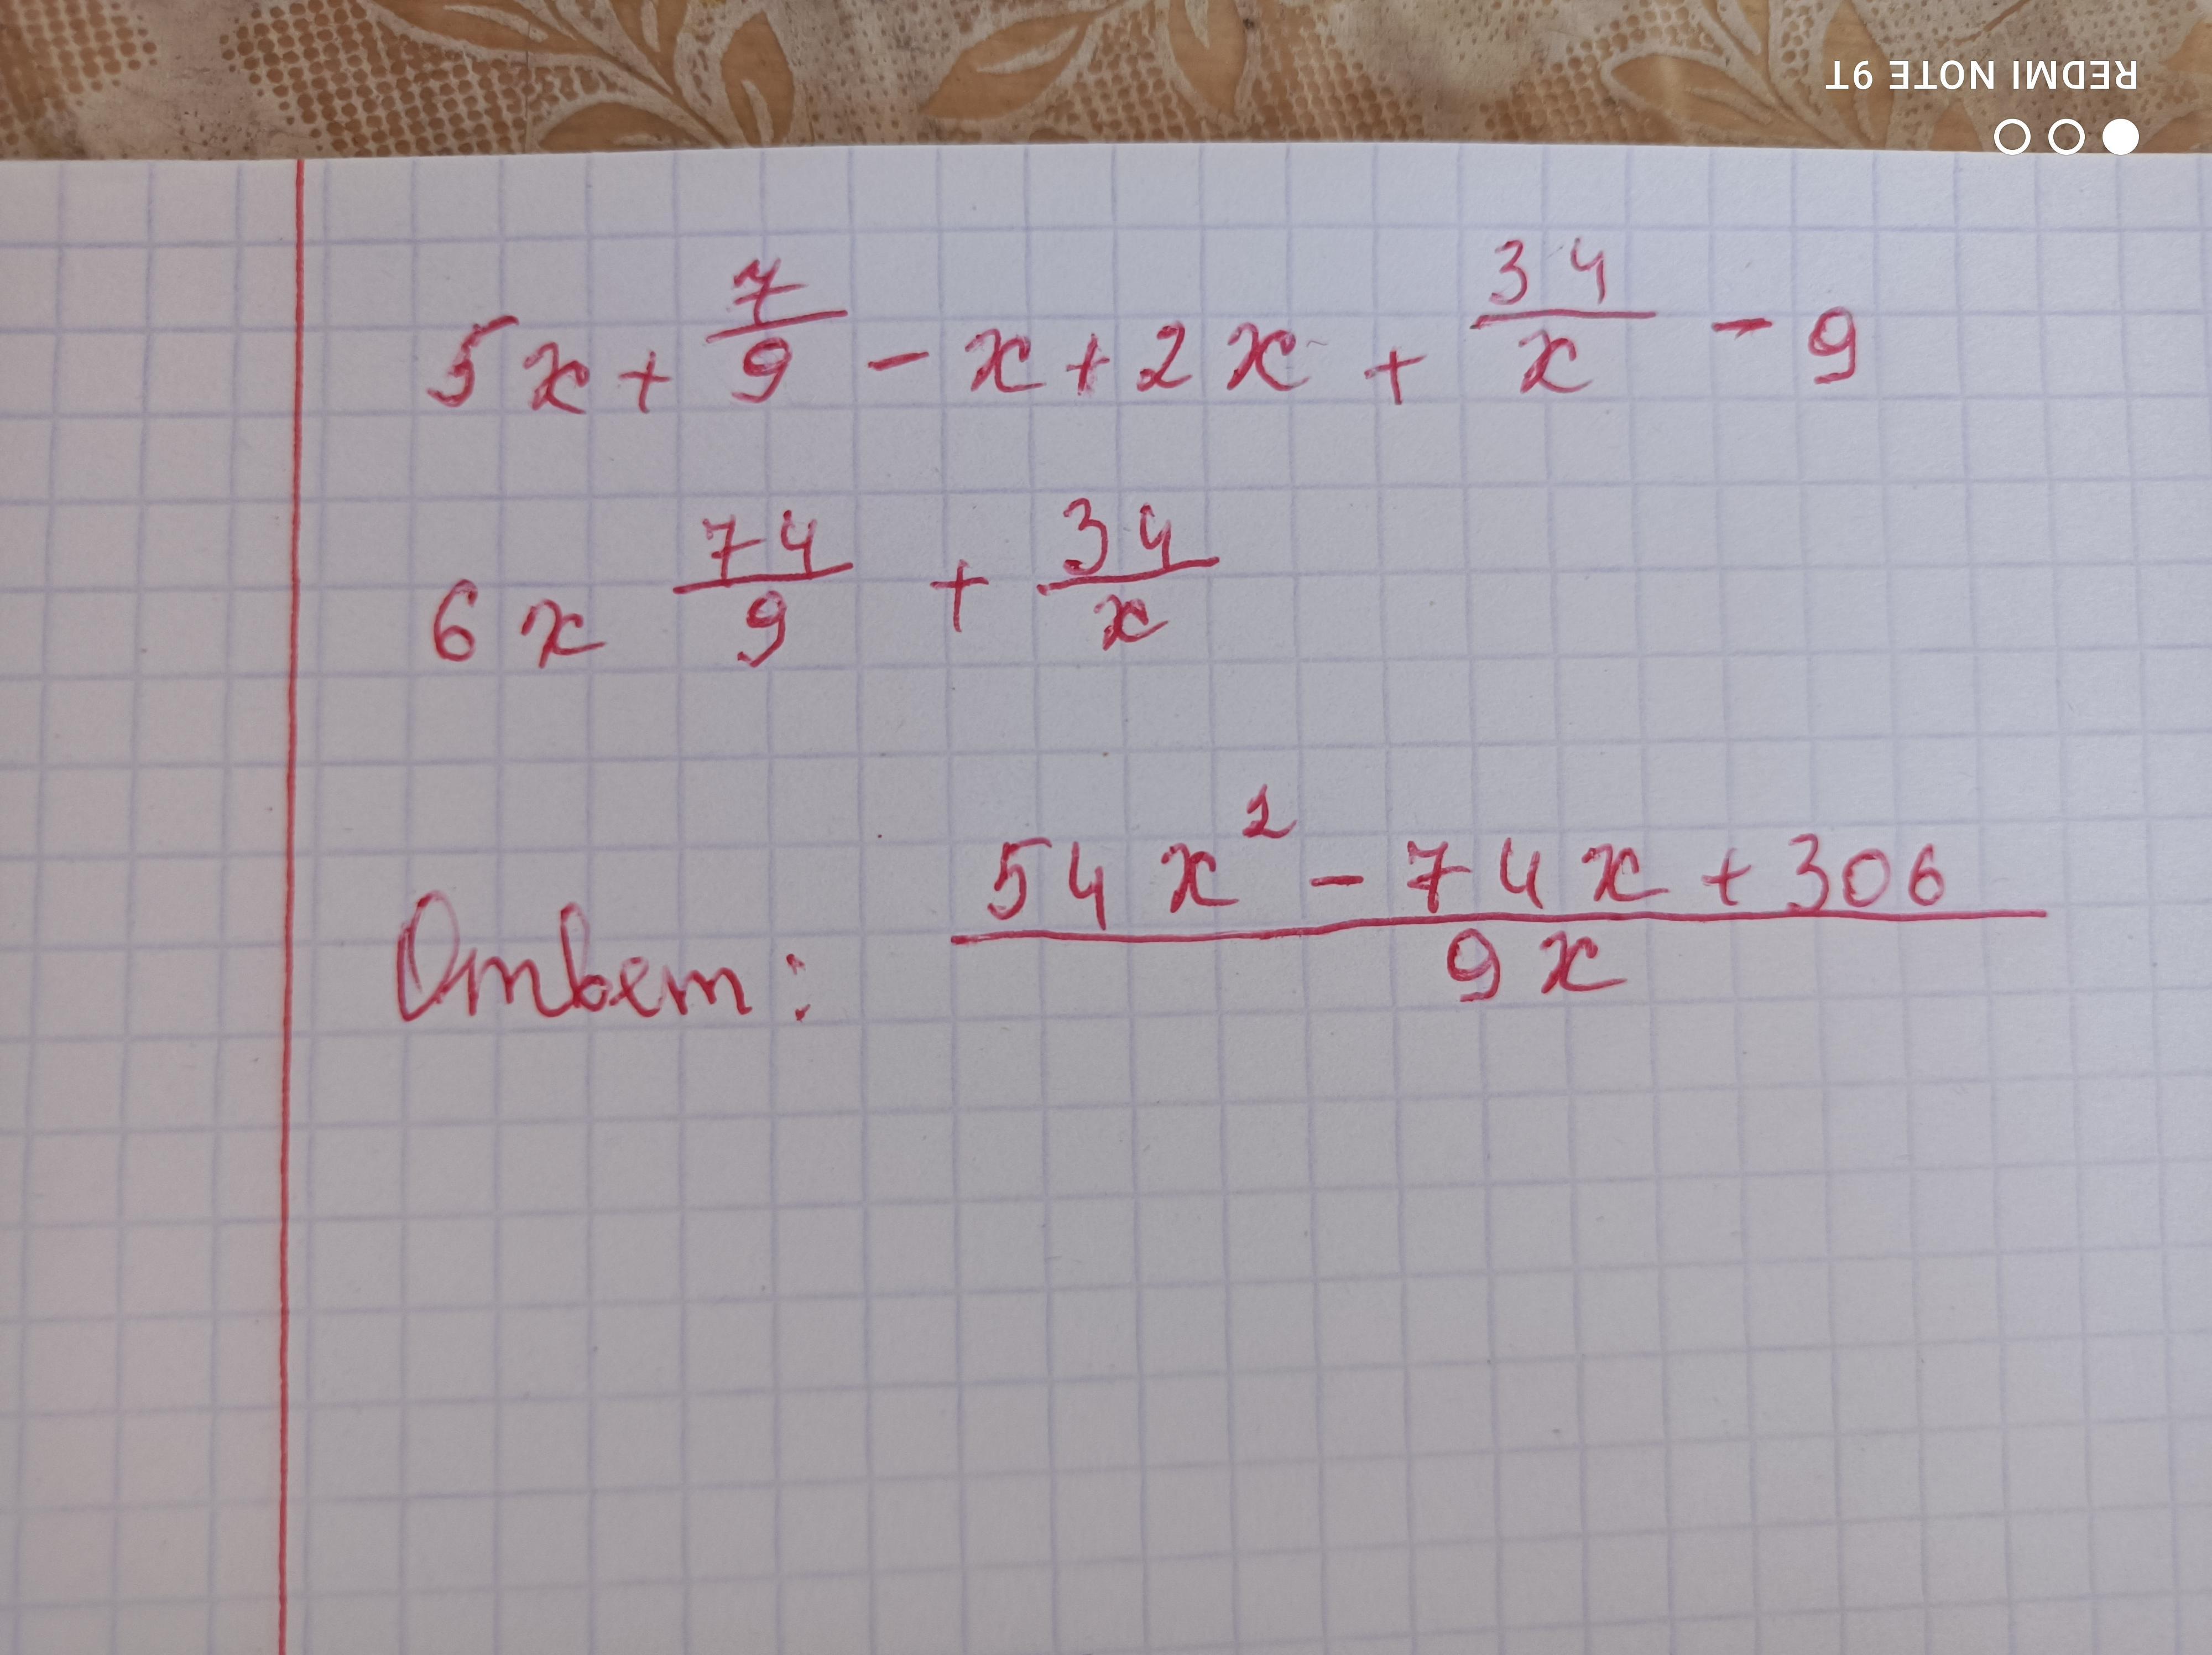 REDMI NOTE 9T
5x + 7/9 - x + 2x + 34/x - 9
6x 74/9 + 34/x
Ответ: 54x² - 74x + 306 / 9x